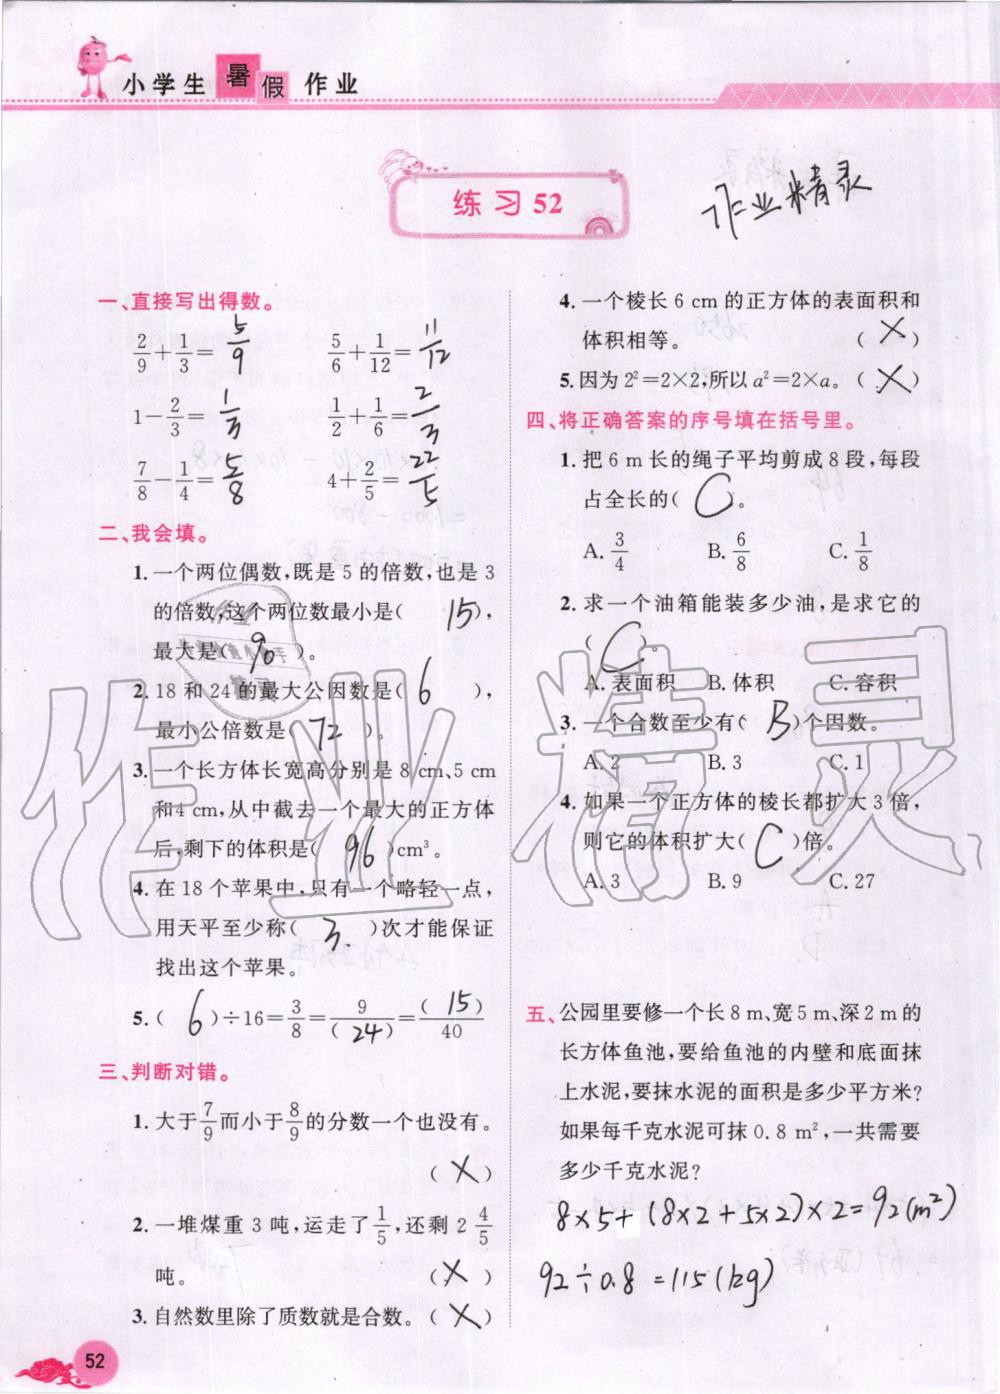 小学生暑假作业
练习52
作业精灵
一、直接写出得数。
2/9+1/3=5/9 5/6+1/12=11/12
1-2/3=1/3 1/2+1/6=2/3
7/8-1/4=5/8 4+2/5=22/5
二、我会填。
1.一个两位偶数,既是5的倍数,也是3
的倍数,这个两位数最小是( 15 ),
最大是( 90 )。
2.18和24的最大公因数是( 6 ),
最小公倍数是( 72 )。
3.一个长方体长宽高分别是8 cm、5 cm
和4 cm,从中截去一个最大的正方体
后,剩下的体积是( 96 )cm³。
4.在18个苹果中,只有一个略轻一点,
用天平至少称( 3 )次才能保证
找出这个苹果。
5.( 6 )÷16=3/8=9/(24)=(15)/40
三、判断对错。
1.大于7/9而小于8/9的分数一个也没有。
( × )
2.一堆煤重3吨,运走了1/5,还剩2 4/5
吨。 ( × )
3.自然数里除了质数就是合数。( × )
4.一个棱长6 cm的正方体的表面积和
体积相等。 ( × )
5.因为2²=2×2,所以a²=2×a。( × )
四、将正确答案的序号填在括号里。
1.把6 m长的绳子平均剪成8段,每段
占全长的( C )。
A.3/4 B.6/8 C.1/8
2.求一个油箱能装多少油,是求它的
( C )。
A.表面积 B.体积 C.容积
3.一个合数至少有( B )个因数。
A.2 B.3 C.1
4.如果一个正方体的棱长都扩大3倍,
则它的体积扩大( C )倍。
A.3 B.9 C.27
五、公园里要修一个长8 m、宽5 m、深2 m的
长方体鱼池,要给鱼池的内壁和底面抹
上水泥,要抹水泥的面积是多少平方米?
如果每千克水泥可抹0.8 m²,一共需要
多少千克水泥?
8×5+(8×2+5×2)×2=92(m²)
92÷0.8=115(kg)
作业精灵
52